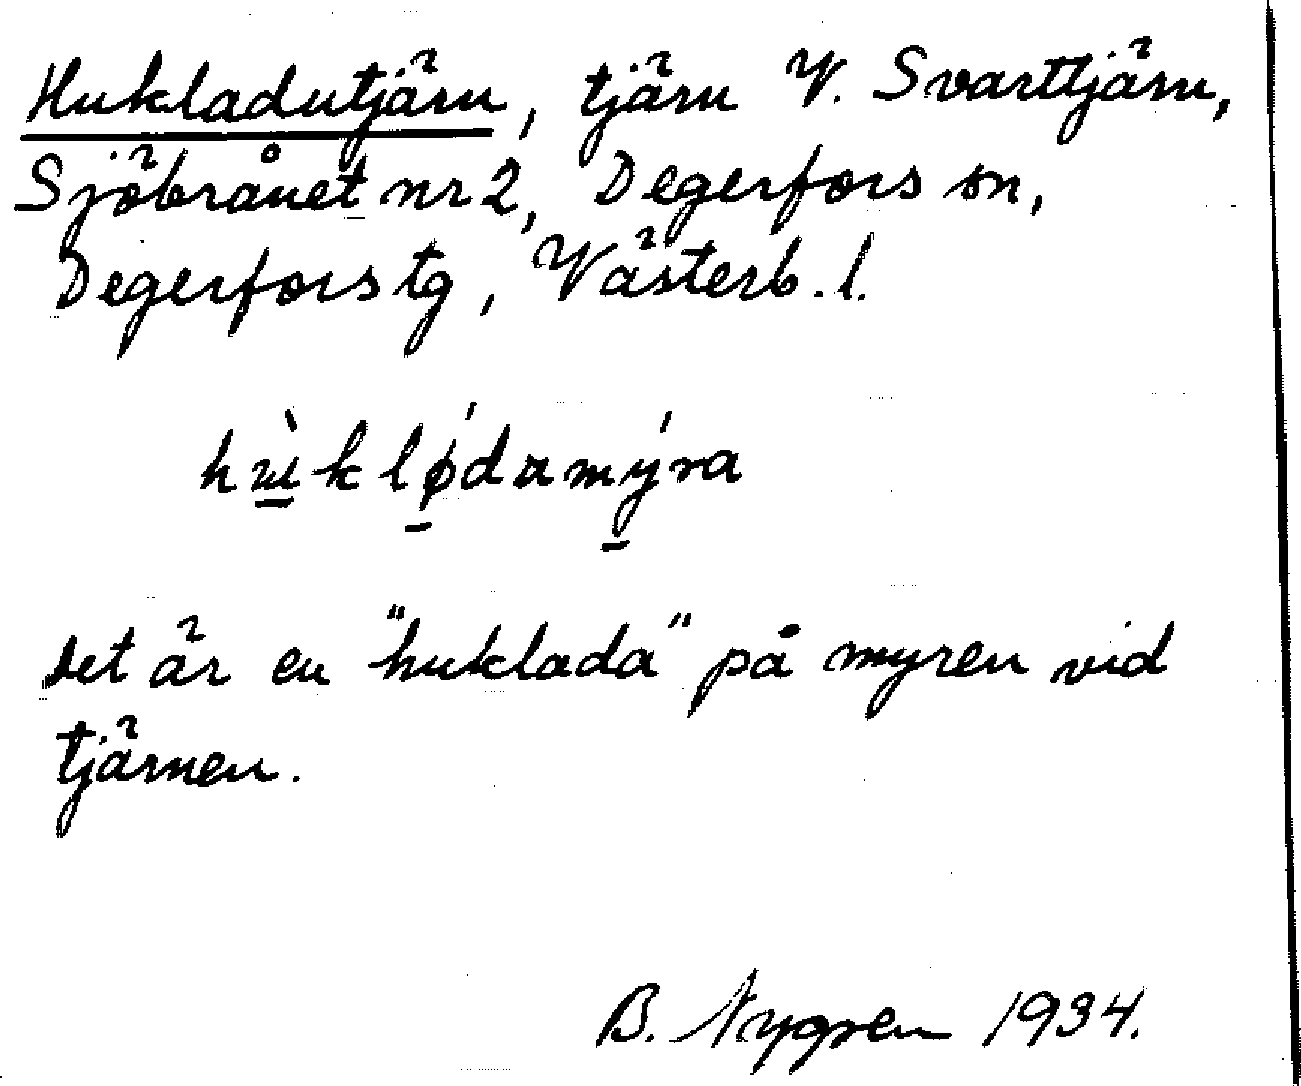 Hukladutjärn, tjärn V. Svarttjärn,
Sjöbrånet nr 2, Degerfors sn,
Degerfors tg, Västerb. l.
det är en "huklada" på myren vid
tjärnen.
B. Nygren 1934.